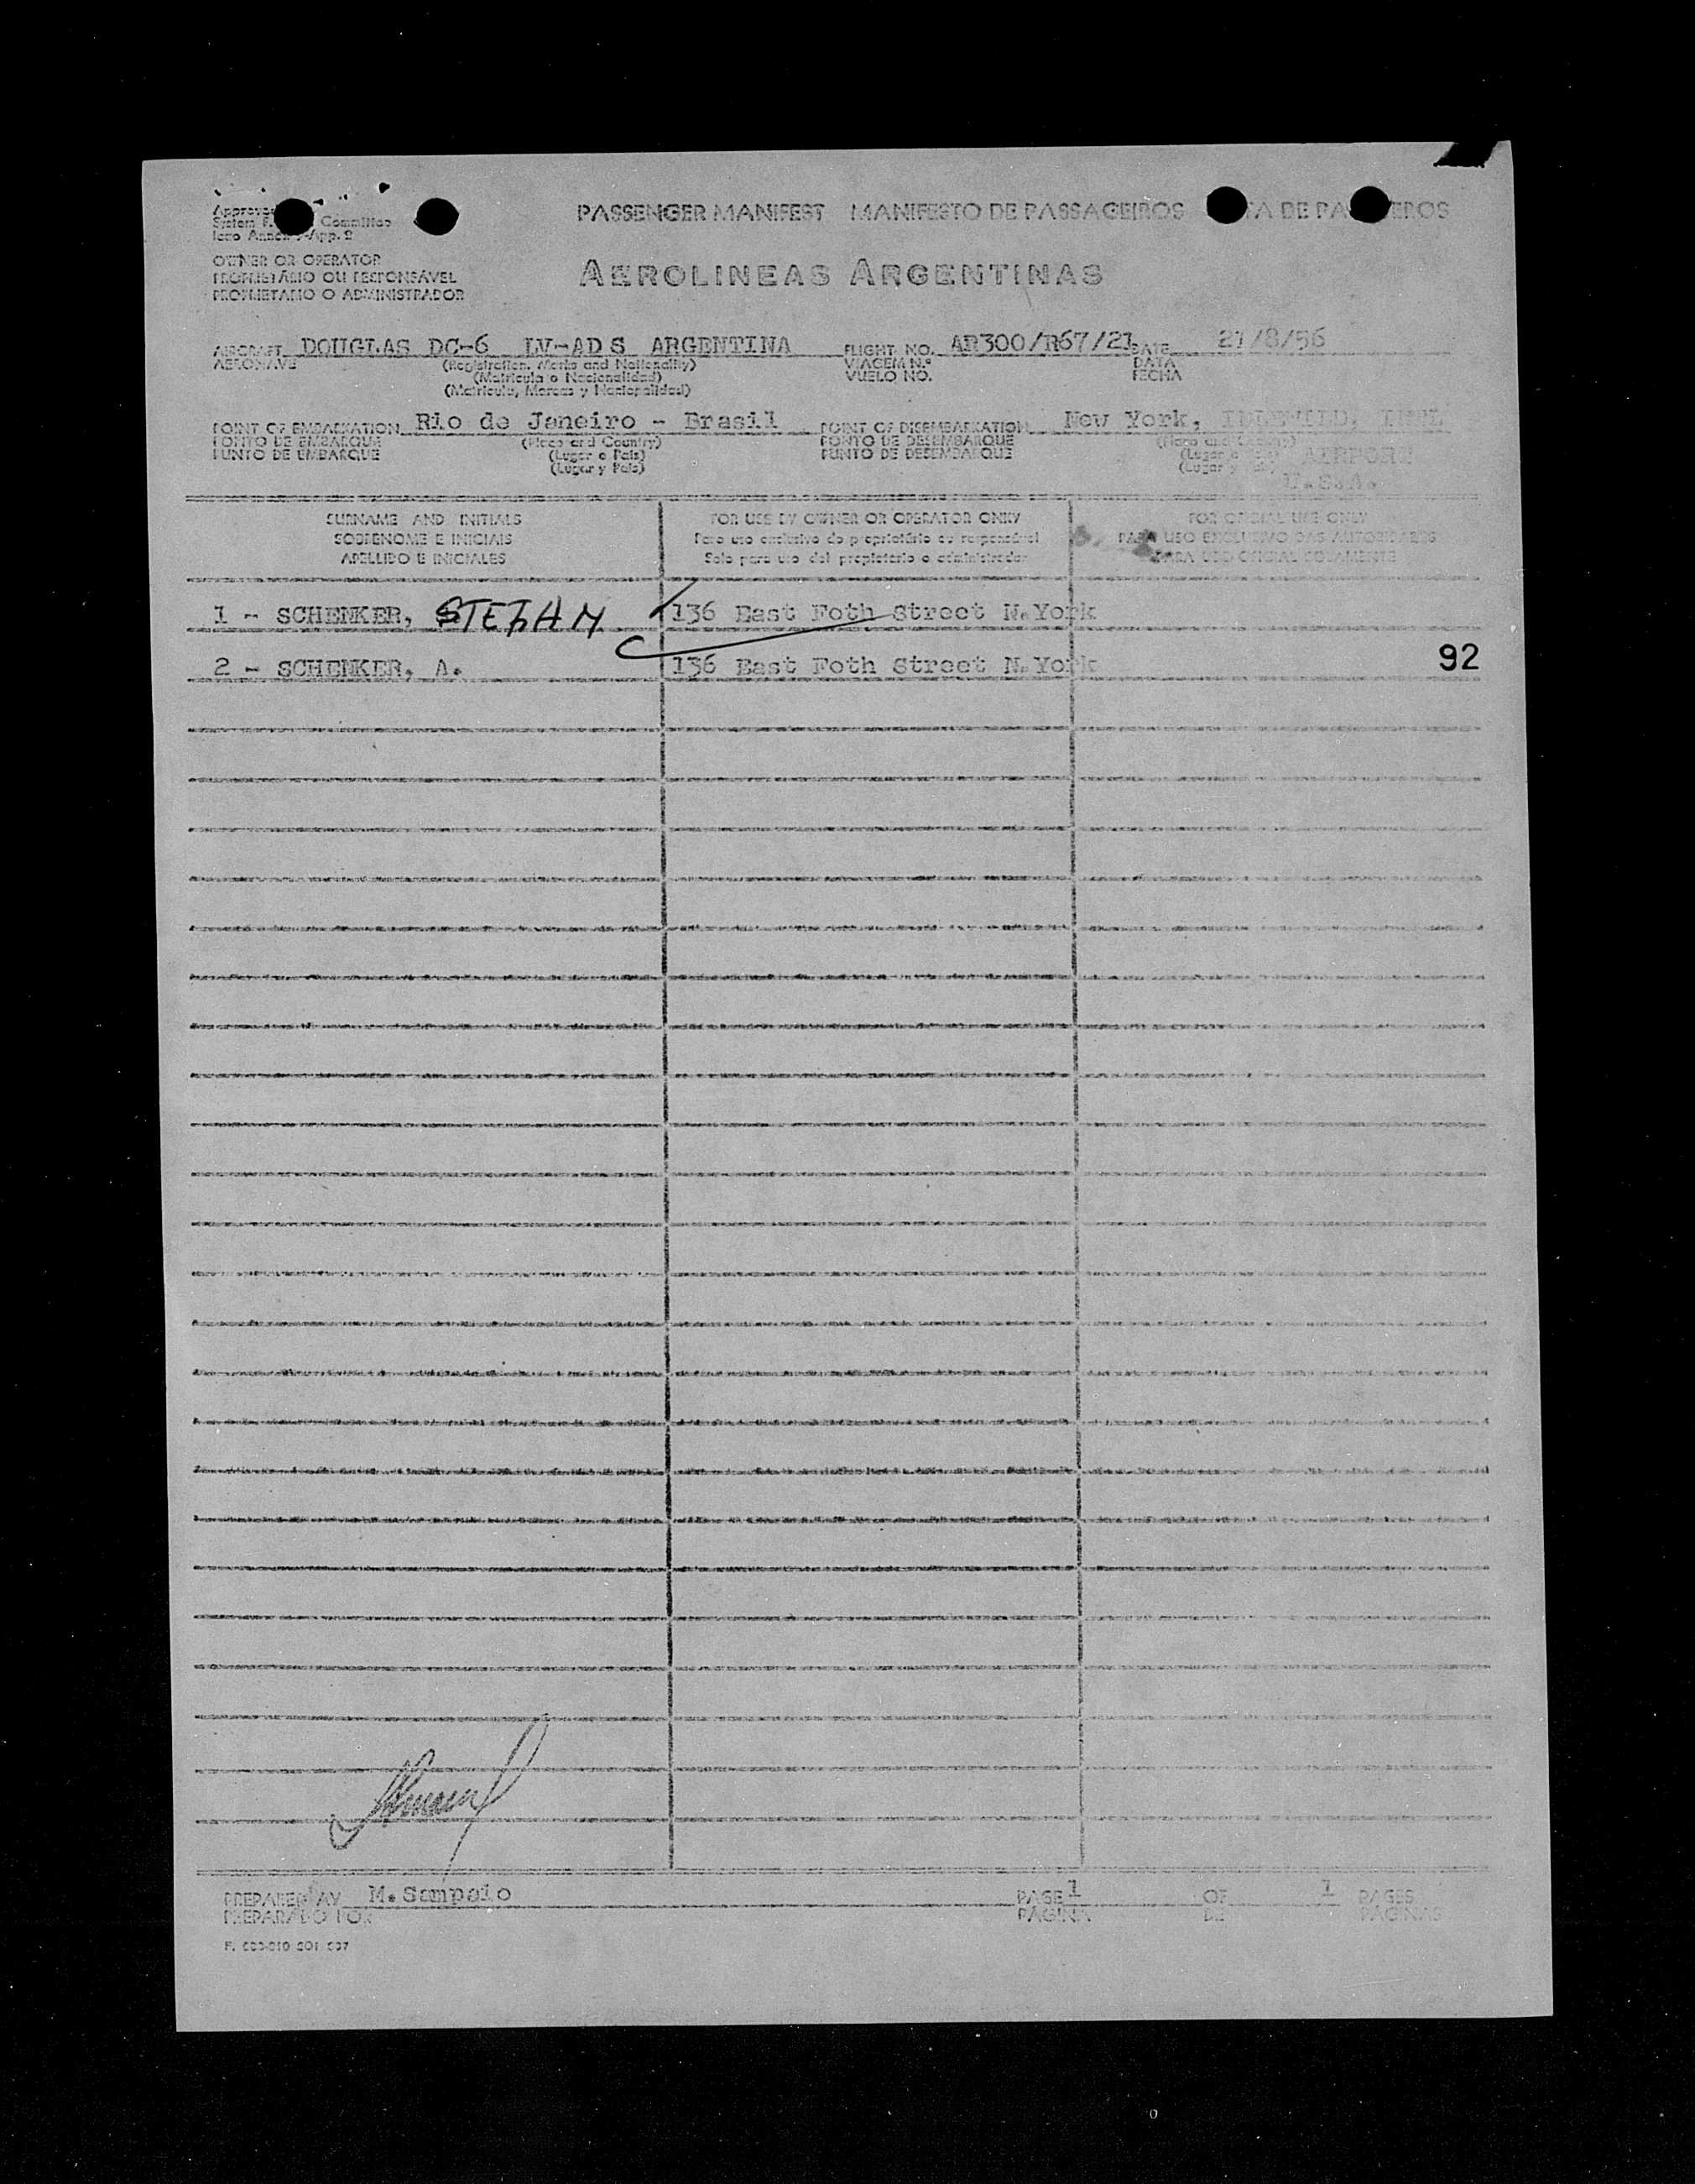 PASSENGER MANIFEST MANIFESTO DE PASSAGEIROS TA DE PA EROS
Approved
System F. Committee
Icao Annex 9-App. 2
OWNER OR OPERATOR
PROPRIETÁRIO OU RESPONSÁVEL
PROPRIETARIO O ADMINISTRADOR
AEROLINEAS ARGENTINAS
AIRCRAFT DOUGLAS DC-6 LV-ADS ARGENTINA FLIGHT NO. AR300/R67/21 DATE 21/8/56
AERONAVE (Registration, Marks and Nationality) VIAGEM N.º DATA
(Matricula o Nacionalidad) VUELO NO. FECHA
(Matricula, Marcas y Nacionalidad)
POINT OF EMBARKATION Rio de Janeiro - Brasil POINT OF DISEMBARKATION New York, IDLEWILD, INTL
PONTO DE EMBARQUE (Place and Country) PONTO DE DESEMBARQUE (Place and Country)
PUNTO DE EMBARQUE (Lugar e Pais) PUNTO DE DESEMBARQUE (Lugar e Pais) AIRPORT
(Lugar y Pais) (Lugar y Pais) U.S.A.
SURNAME AND INITIALS FOR USE BY OWNER OR OPERATOR ONLY FOR OFICIAL USE ONLY
SOBRENOME E INICIAIS Para uso exclusivo do proprietário ou responsável PARA USO EXCLUSIVO DAS AUTORIDADES
APELLIDO E INICIALES Solo para uso del propietario o administrador PARA USO OFICIAL SOLAMENTE
1 - SCHENKER, STEFAN 136 East Foth Street N.York
2 - SCHENKER, A. 136 East Foth Street N.York 92
PREPARED BY M.Sampaio PAGE 1 OF 1 PAGES
PREPARADO POR PAGINA DE PAGINAS